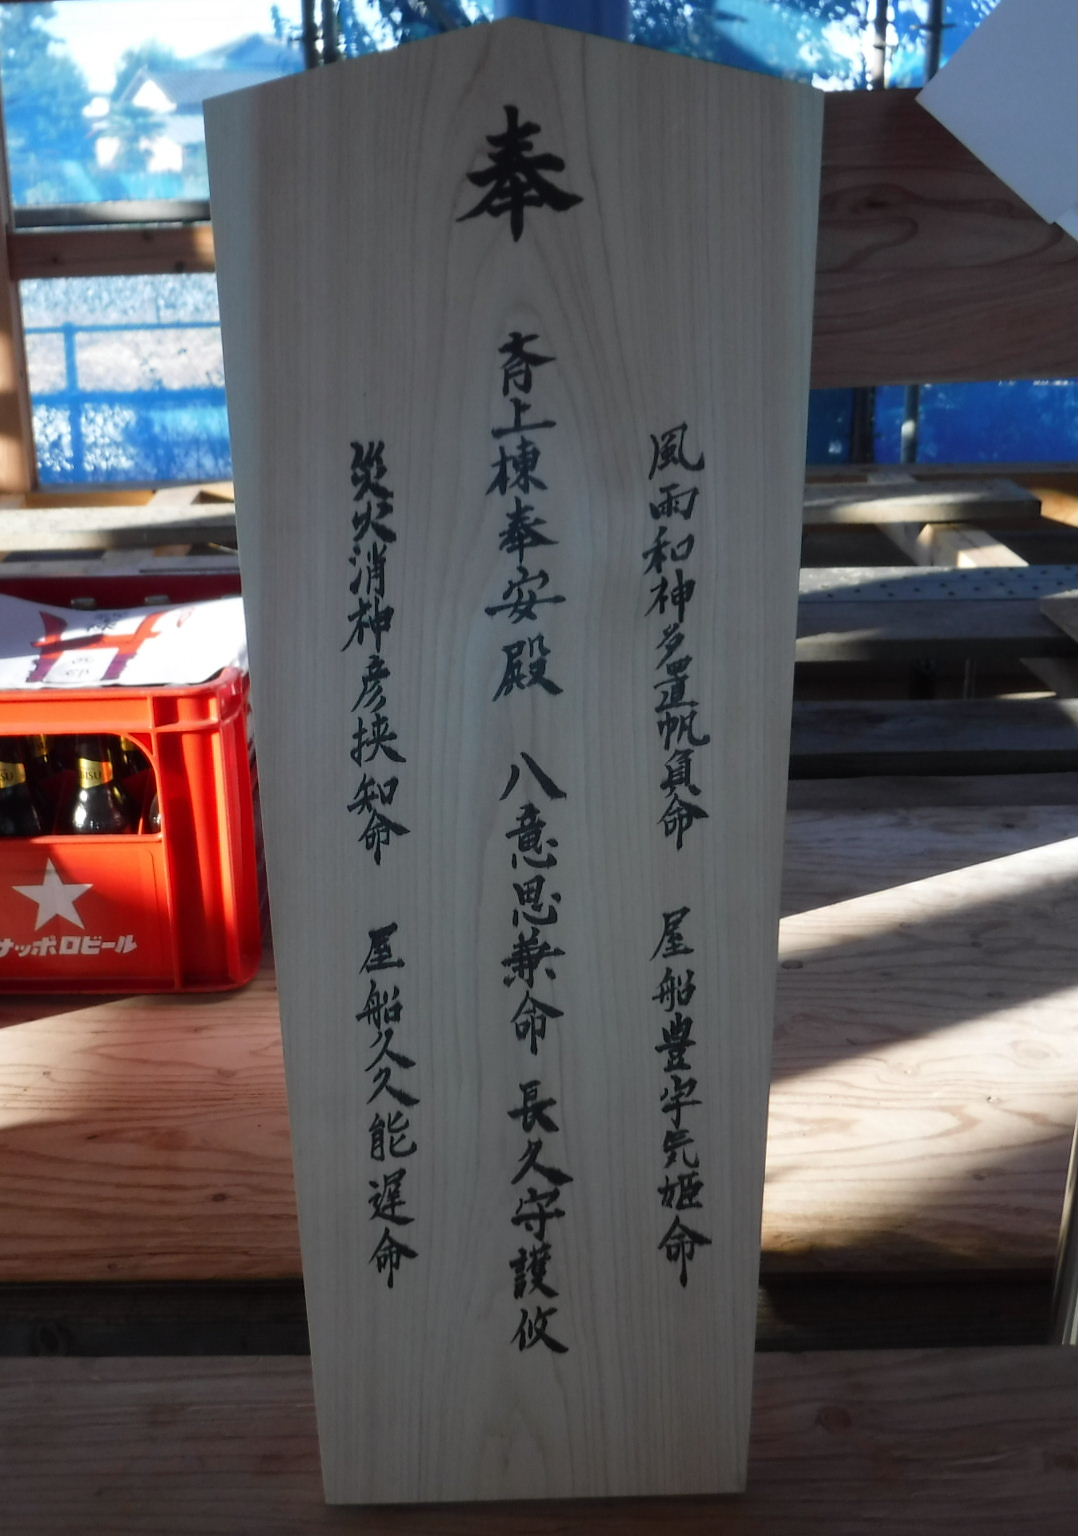 奉
風雨和神多置帆負命 屋船豊宇気姫命
斉上棟奉安殿 八意思兼命 長久守護攸
災火消神彦挟知命 屋船久久能遅命
サッポロビール